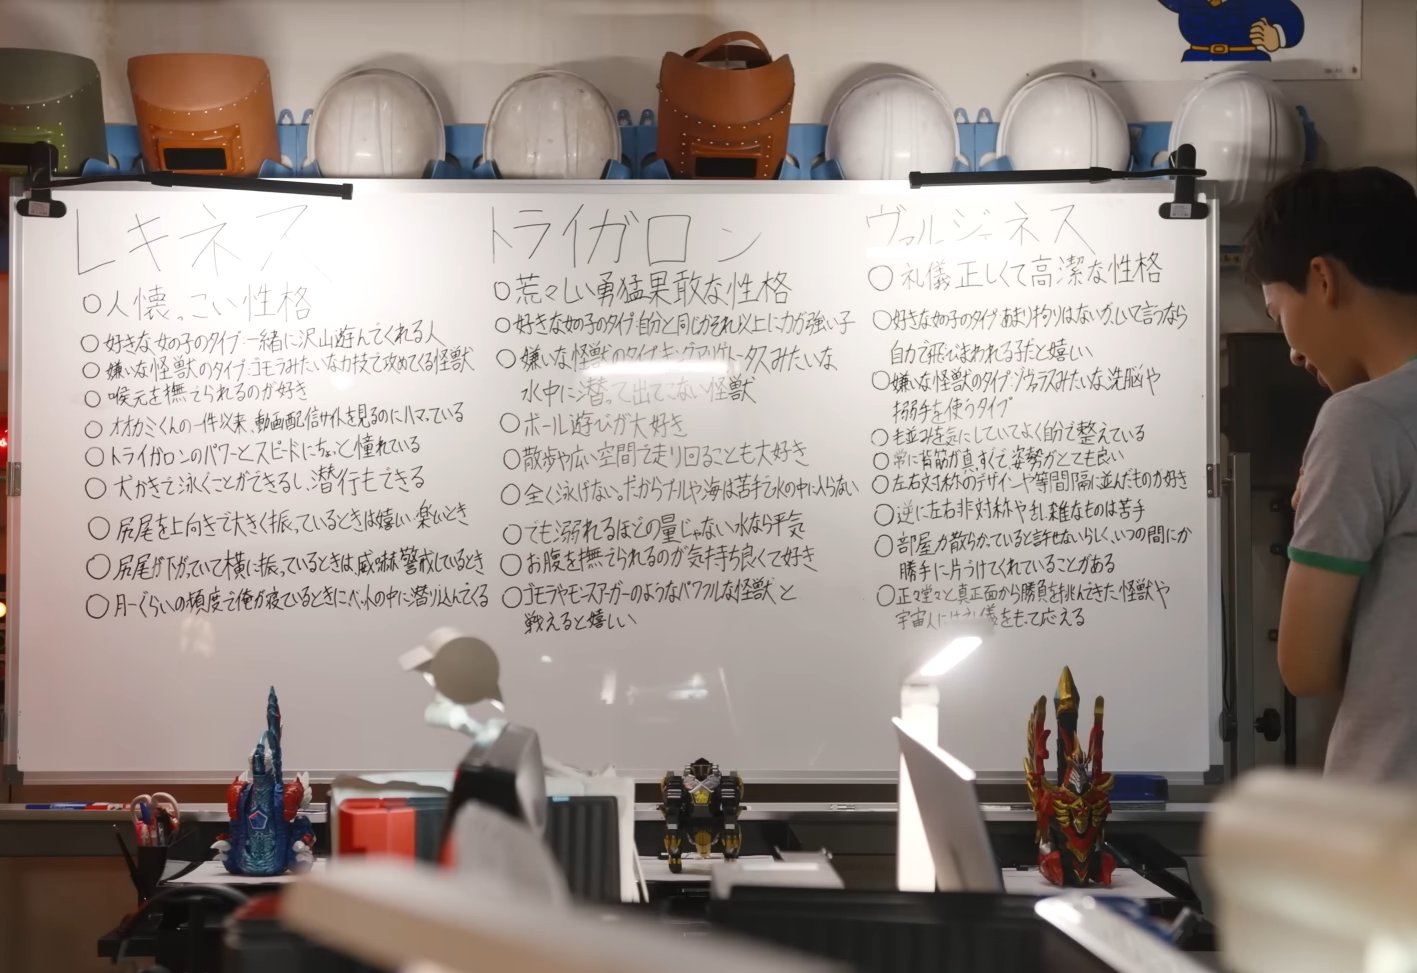 レキネス
○人懐っこい性格
○好きな女の子のタイプ:一緒に沢山遊んでくれる人
○嫌いな怪獣のタイプ:ゴモラみたいな力技で攻めてくる怪獣
○喉元を撫でられるのが好き
○オオカミくんの一件以来、動画配信サイトを見るのにハマっている
○トライガロンのパワーとスピードにちょっと憧れている
○犬かきで泳ぐことができるし、潜行もできる
○尻尾を上向きで大きく振っているときは嬉しい楽しいとき
○尻尾が下がっていて横に振っているときは、威嚇警戒しているとき
○月一ぐらいの頻度で俺が寝ているときにベットの中に潜り込んでくる
トライガロン
○荒々しい勇猛果敢な性格
○好きな女の子のタイプ:自分と同じかそれ以上に力が強い子
○嫌いな怪獣のタイプ:キングゲスラみたいな
水中に潜って出てこない怪獣
○ボール遊びが大好き
○散歩や広い空間で走り回ることも大好き
○全く泳げない。だからプールや海は苦手で水の中に入らない
○でも溺れるほどの量じゃない水なら平気
○お腹を撫でられるのが気持ち良くて好き
○ゴモラやモンスアーガーのようなパワフルな怪獣と
戦えると嬉しい
ヴァルジェネス
○礼儀正しくて高潔な性格
○好きな女の子のタイプ:あまり拘りはないが、しいて言うなら
自力で飛びまわれる子だと嬉しい
○嫌いな怪獣のタイプ:みたいな洗脳や
搦手を使うタイプ
○毛並みを気にしていてよく自分で整えている
○常に背筋が真っすぐで、姿勢がとても良い
○左右対称のデザインや等間隔に並んだものが好き
○逆に左右非対称や乱雑なものは苦手
○部屋が散らかっていると許せないらしく、いつの間にか
勝手に片づけてくれていることがある
○正々堂々と真正面から勝負を挑んできた怪獣や
宇宙人には礼儀をもって応える